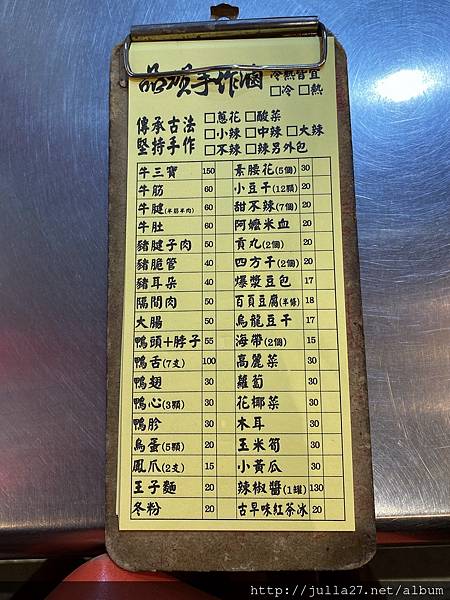 品項手作滷 冷熱皆宜
□冷 □熱
傳承古法 □蔥花 □酸菜
堅持手作 □小辣 □中辣 □大辣
□不辣 □辣另外包
牛三寶 150 素腰花(5個) 30
牛筋 60 小豆干(12顆) 20
牛腱(半筋半肉) 60 甜不辣(7個) 20
牛肚 60 阿嬤米血 20
豬腱子肉 50 貢丸(2個) 20
豬脆管 40 四方干(2個) 20
豬耳朵 40 爆漿豆包 17
隔間肉 50 百頁豆腐(半條) 18
大腸 50 烏龍豆干 17
鴨頭+脖子 55 海帶(2個) 15
鴨舌(7支) 100 高麗菜 30
鴨翅 30 蘿蔔 30
鴨心(3顆) 30 花椰菜 30
鴨胗 30 木耳 30
鳥蛋(5顆) 20 玉米筍 30
鳳爪(2支) 15 小黃瓜 30
王子麵 20 辣椒醬(1罐) 130
冬粉 20 古早味紅茶冰 20
http://julla27.net/album